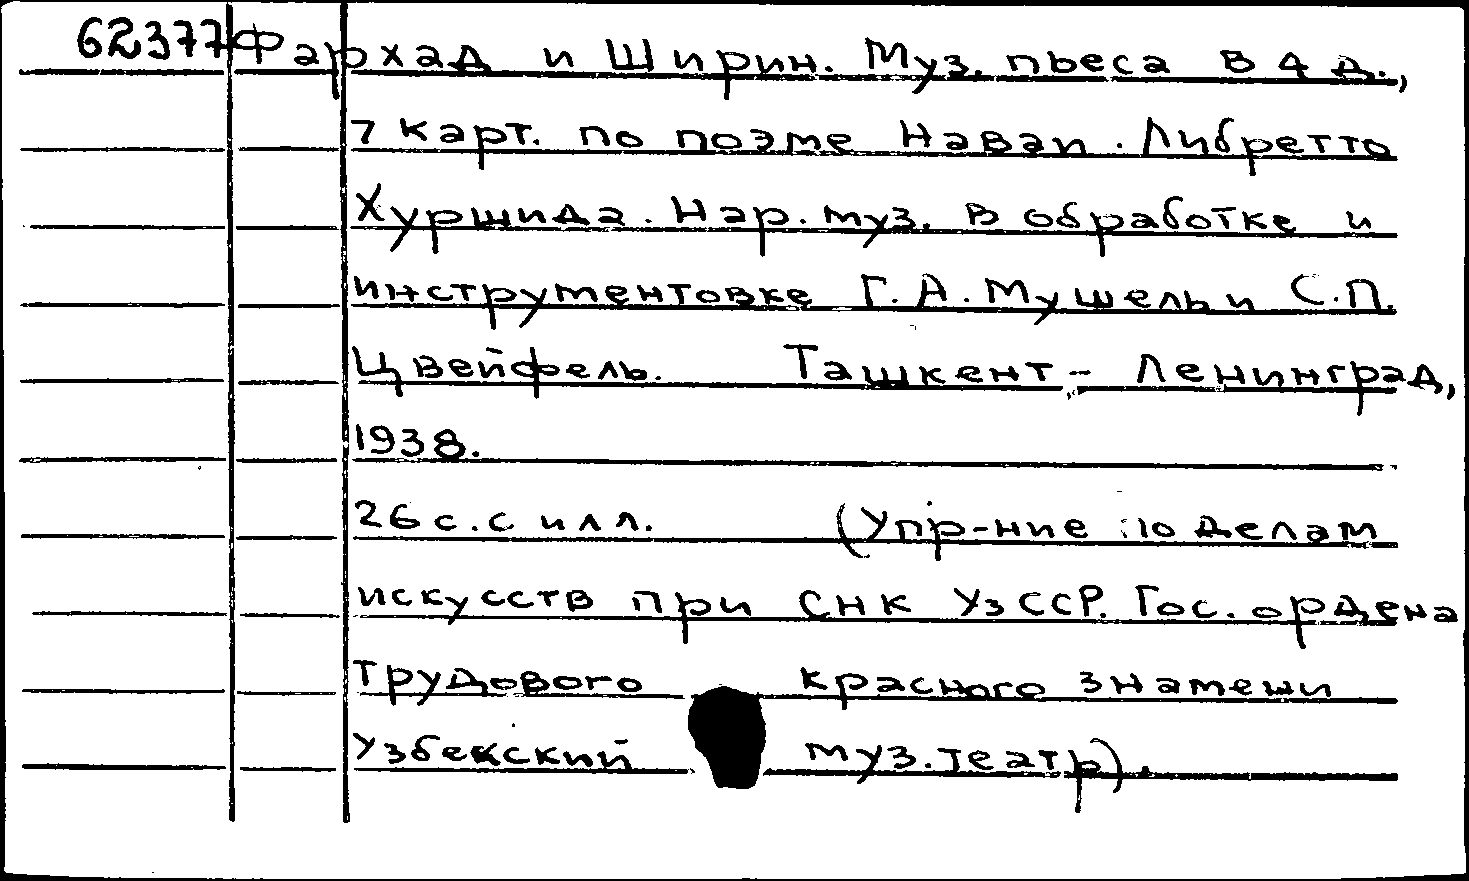 62377 Фархад и Ширин. Муз. пьеса в 4 д.,
7 карт. по поэме Наваи. Либретто
Хуршида. Нар. муз. в обработке и
инструментовке Г.А. Мушель и С.П.
Цвейфель. Ташкент - Ленинград,
1938.
26 с. с илл. (Упр-ние по делам
искусств при СНК УзССР. Гос. ордена
трудового красного знамени
Узбекский муз. театр).